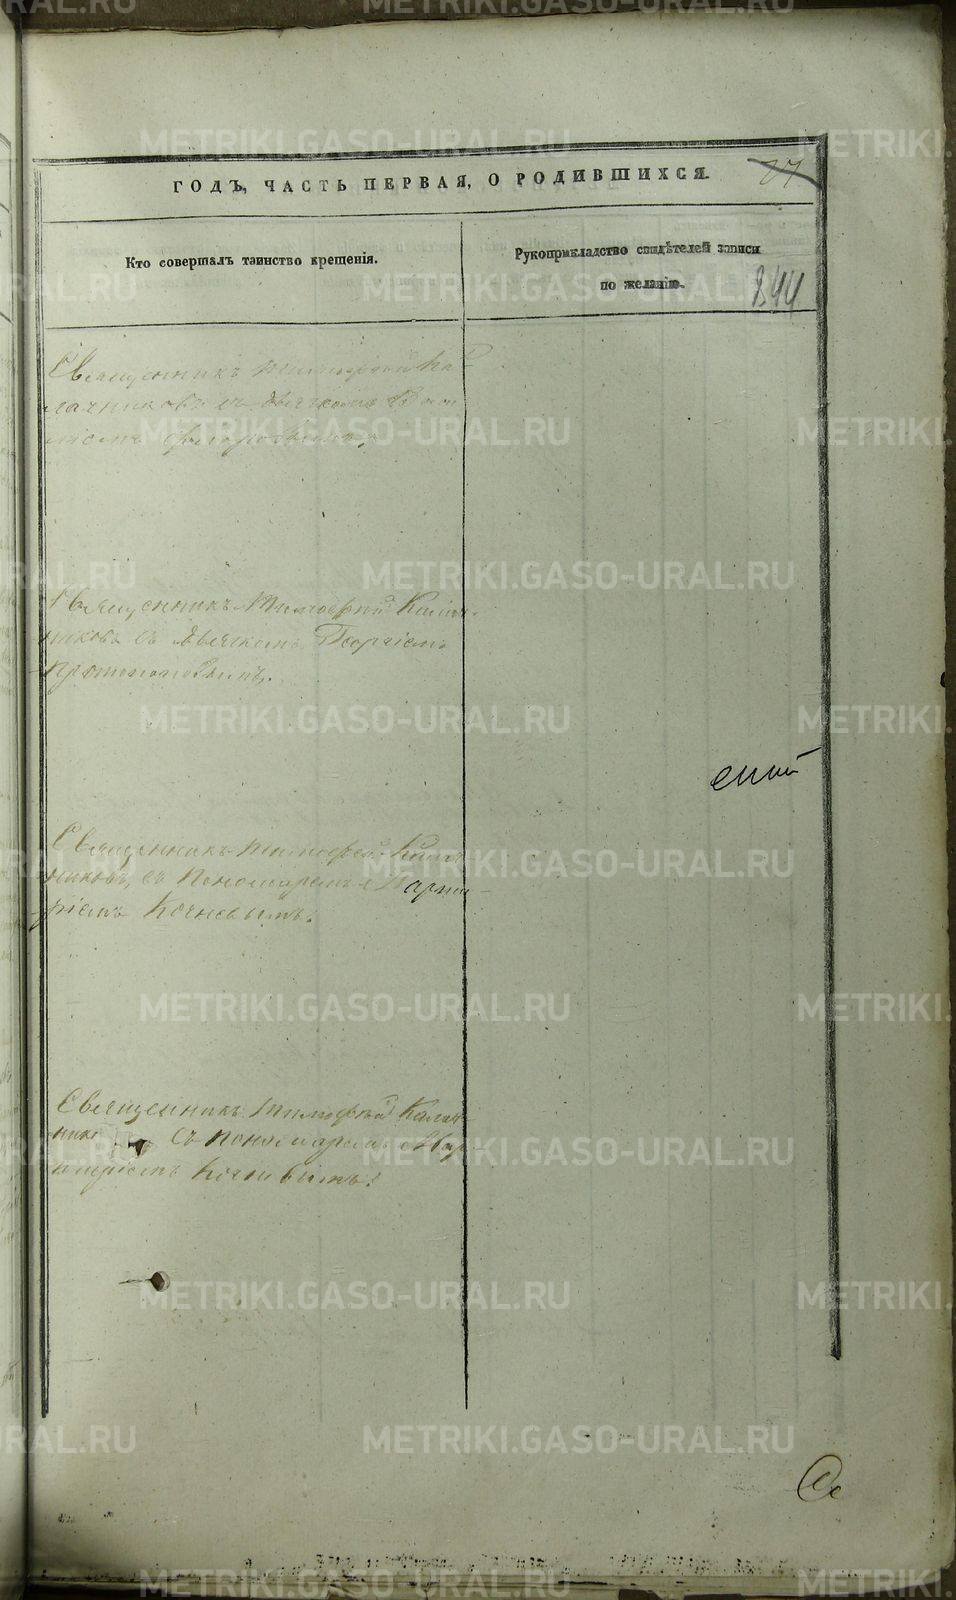 ГОДЪ, ЧАСТЬ ПЕРВАЯ, О РОДИВШИХСЯ.
87
Кто совершалъ таинство крещенія.
Рукоприкладство свидѣтелей записи
по желанію.
844
Священникъ Тимофей Ка-
лачниковъ съ дьячкомъ
Священникъ Тимофей Калач-
никовъ съ дьячкомъ Георгіемъ
Протопоповымъ.
еной
Священникъ Тимофей Калач
никовъ, съ Пономаремъ
Кочневымъ.
Священникъ Тимофей Калач
нико съ пономаремъ
Кочневымъ.
METRIKI.GASO-URAL.RU